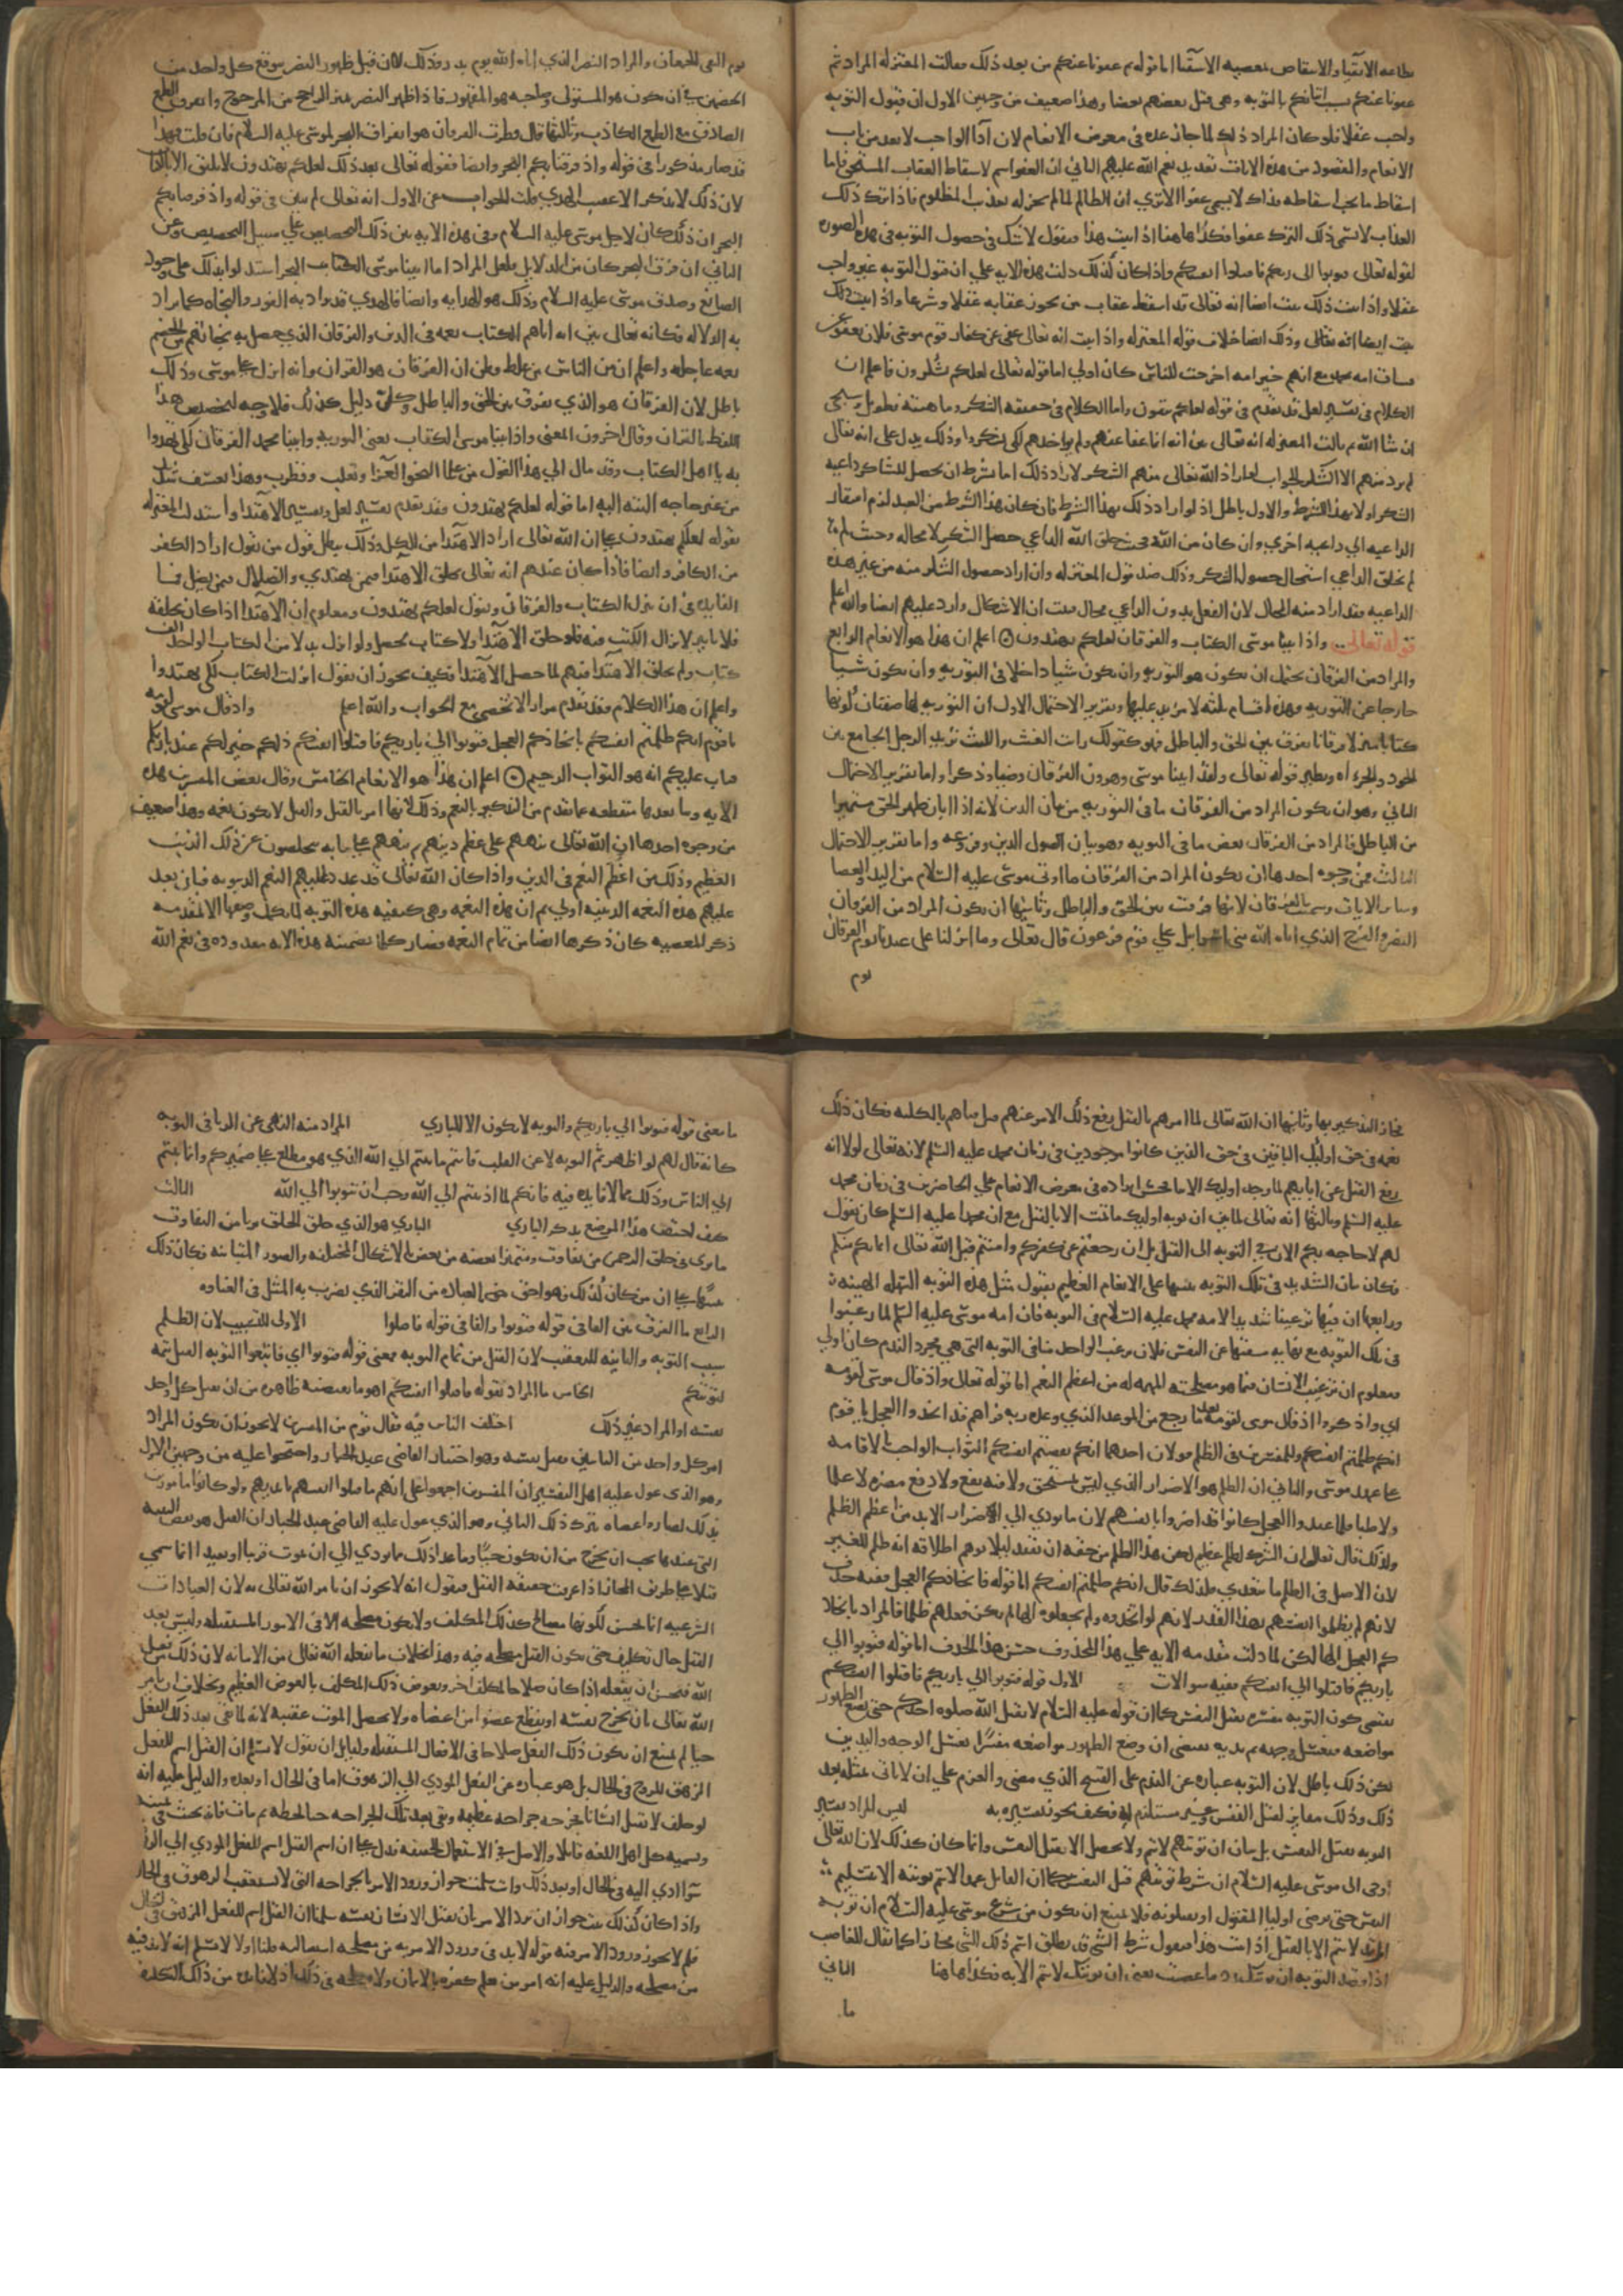 طاعه الاتقيا والانتقاص بمعصيه الاشقيا اما قوله ثم عفونا عنكم من بعد ذلك فقالت المعتزله المراد ثم
عفونا عنكم بسبب اتيانكم بالتوبه وهي قتل بعضهم بعضا وهذا ضعيف من وجهين الاول ان قبول التوبه
واجب عقلا فلو كان المراد ذلك لما جاز عده في معرض الانعام لان ادا الواجب لا يعد من باب
الانعام والمقصود من هذه الايات تعديد نعم الله عليهم الثاني ان العفو اسم لاسقاط العقاب المستحق فاما
اسقاط ما يجب اسقاطه فذاك لا يسمي عفوا الا تري ان الظالم لما لم يجز له تعذيب المظلوم فاذا ترك ذلك
العذاب لا يسمى ذلك الترك عفوا فكذا هاهنا اذا ثبت هذا فنقول لا شك في حصول التوبه في هذه الصوره
لقوله تعالى فتوبوا الى ربكم فاقتلوا انفسكم واذا كان كذلك دلت هذه الايه علي ان قبول التوبه غير واجب
عقلا واذا ثبت ذلك ثبت ايضا انه تعالى قد اسقط عقاب من يجوز عقابه عقلا وشرعا واذا ثبت ذلك
ثبت ايضا انه تعالى وذلك ايضا خلاف قول المعتزله واذا ثبت انه تعالى عفى عن كفار قوم موسى فلان يعفو عن
فساق امه محمد مع انهم خير امه اخرجت للناس كان اولي اما قوله تعالى لعلكم تشكرون فاعلم ان
الكلام في تفسير لعل قد تقدم في قوله لعلكم تتقون واما الكلام في حقيقه الشكر وماهيته فطويل وسيجى
ان شا الله ثم قالت المعتزله انه تعالى بين انه انما عفا عنهم ولم يواخذهم لكي يشكروا وذلك يدل على انه تعالى
لم يرد منهم الا الشكر والجواب لو اراد الله تعالى منهم الشكر لاراد ذلك اما بشرط ان يحصل للشاكر داعيه
الشكر او لا بهذا الشرط والاول باطل اذ لو اراد ذلك بهذا الشرط فان كان هذا الشرط من العبد لزم افتقار
الداعيه الي داعيه اخري وان كان من الله فحيث خلق الله الداعي حصل الشكر لا محاله وحيث لم
لم يخلق الداعي استحال حصول الشكر وذلك ضد قول المعتزله وان اراد حصول الشكر منه من غير هذه
الداعيه فقد اراد منه المحال لان الفعل بدون الداعي محال فثبت ان الاشكال وارد عليهم ايضا والله اعلم
قوله تعالى واذ اتينا موسى الكتاب والفرقان لعلكم تهتدون اعلم ان هذا هو الانعام الرابع
والمراد من الفرقان يحتمل ان يكون هو التوريه وان يكون شيا داخلا في التوريه وان يكون شيا
خارجا عن التوريه وهذه اقسام ثلثه لا مزيد عليها وتقرير الاحتمال الاول ان التوريه لها صفتان كونها
كتابا منزلا وفرقانا يفرق بين الحق والباطل فهو كقولك رايت الغيث والليث تريد الرجل الجامع بين
الجود والجراه ونظيره قوله تعالى ولقد اتينا موسى وهرون الفرقان وضيا وذكرا واما تقرير الاحتمال
الثاني وهو ان يكون المراد من الفرقان ما في التوريه من بيان الدين لانه اذا ابان ظهر الحق متميزا
من الباطل فالمراد من الفرقان بعض ما في التوريه وهو بيان اصول الدين وفروعه واما تقرير الاحتمال
الثالث فمن وجوه احدها ان يكون المراد من الفرقان ما اوتى موسى عليه السلام من اليد والعصا
وساير الايات وسميت بالفرقان لانها فرقت بين الحق والباطل وثانيها ان يكون المراد من الفرقان
النصر والفرج الذي اتاه الله بني اسرايل علي قوم فرعون قال تعالى وما انزلنا على عبدنا يوم الفرقان
يوم
يوم التقى الجمعان والمراد النصر الذي اتاه الله يوم بدر وذلك لان قبل ظهور النصر يتوقع كل واحد من
الخصمين في ان يكون هو المستولي وصاحبه هو المقهور فاذا ظهر النصر تميز الراجح من المرجوح وانفرق الطمع
الصادق مع الطمع الكاذب وثالثها قال قطرب الفرقان هو انفراق البحر لموسى عليه السلام فان قلت فهذا
قد صار مذكورا في قوله واذ فرقنا بكم البحر وايضا فقوله تعالى بعد ذلك لعلكم تهتدون لا يليق الا بالكتاب
لان ذلك لا يذكر الا عقيب الهدي قلت الجواب عن الاول انه تعالى لم يبين في قوله واذ فرقنا بكم
البحر ان ذلك كان لاجل موسى عليه السلام وفي هذه الايه بين ذلك التخصيص علي سبيل التنصيص وعن
الثاني ان فرق البحر كان من الدلايل فلعل المراد انا لما اتينا موسى الكتاب البحر استدلوا بذلك على وجود
الصانع وصدق موسى عليه السلام وذلك هو الهدايه وايضا فالهدي قد يراد به الفوز والنجاه كما يراد
به الدلاله فكانه تعالى بين انه اتاهم الكتاب نعمه في الدين والفرقان الذي حصل به نجاتهم من الخصم
نعمه عاجله واعلم ان من الناس من غلط وظن ان الفرقان هو القران وانه انزل على موسى وذلك
باطل لان الفرقان هو الذي يفرق بين الحق والباطل وكل دليل كذلك فلا وجه لتخصيص هذا
اللفظ بالقران وقال اخرون المعنى واذ اتينا موسى الكتاب يعنى التوريه واتينا محمد الفرقان لكي تهتدوا
به يا اهل الكتاب وقد مال الي هذا القول من علما النحو الفرا وثعلب وقطرب وهذا تعسف شديد
من غير حاجه البته اليه اما قوله لعلكم تهتدون فقد تقدم تفسير لعل وتفسير الاهتدا واستدلت المعتزله
بقوله لعلكم تهتدون على ان الله تعالى اراد الاهتدا من الكل وذلك يبطل قول من يقول اراد الكفر
من الكافر وايضا فاذا كان عندهم انه تعالى يخلق الاهتدا فيمن يهتدي والضلال فيمن يضل فما
الفايده في ان ينزل الكتاب والفرقان ويقول لعلكم تهتدون ومعلوم ان الاهتدا اذا كان بخلقه
فلا تاثير لانزال الكتب فيه فلو خلق الاهتدا ولا كتاب لحصل ولو انزل بدلا من الكتاب الواحد الف
كتاب ولم يخلق الاهتدا فيهم لما حصل الاهتدا فكيف يجوز ان يقول انزلت الكتاب لكي تهتدوا
واعلم ان هذا الكلام فقد تقدم مرارا لا تحصى مع الجواب والله اعلم واذ قال موسى لقومه
يا قوم انكم ظلمتم انفسكم باتخاذكم العجل فتوبوا الي باريكم فاقتلوا انفسكم ذلكم خير لكم عند باريكم
فتاب عليكم انه هو التواب الرحيم اعلم ان هذا هو الانعام الخامس وقال بعض المفسرين هذه
الايه وما بعدها منقطعه عما تقدم من التذكير بالنعم وذلك لانها امر بالقتل والقتل لا يكون نعمه وهذا ضعيف
من وجوه احدها ان الله تعالى نبههم على عظم ذنبهم ثم نبههم على ما به يتخلصون عن ذلك الذنب
العظيم وذلك من اعظم النعم في الدين واذا كان الله تعالى قد عدد عليهم النعم الدنيويه فبان يعد
عليهم هذه النعمه الدينيه اولي ثم ان هذه النعمه وهي كيفيه هذه التوبه لما لم يكمل وصفها الا بمقدمه
ذكر المعصيه كان ذكرها ايضا من تمام النعمه فصار كل ما تضمنه هذه الايه معدوده في نعم الله
فجاز التذكير بها وثانيها ان الله تعالى لما امرهم بالقتل رفع ذلك الامر عنهم قبل فناهم بالكليه فكان ذلك
نعمه في حق اوليك الباقين في حق الذين كانوا موجودين في زمان محمد عليه السلم لانه تعالى لولا انه
رفع القتل عن ابايهم لما وجد اوليك الابنا فحسن ايراده في معرض الانعام علي الحاضرين في زمان محمد
عليه السلم وثالثها انه تعالى لما بين ان توبه اوليك ما تمت الا بالقتل مع ان محمدا عليه السلم كان يقول
لهم لا حاجه بكم الان في التوبه الى القتل بل ان رجعتم عن كفركم وامنتم قبل الله تعالى ايمانكم منكم
فكان بيان التشديد في تلك التوبه تنبيها على الانعام العظيم بقبول مثل هذه التوبه السهله الهينه
ورابعها ان فيها ترغيبا شديدا لامه محمد عليه السلام في التوبه فان امه موسى عليه السلم لما رغبوا
في تلك التوبه مع نهايه مشقتها عن النفس فلان يرغب الواحد منا في التوبه التي هي مجرد الندم كان اولي
ومعلوم ان ترغيب الانسان فيما هو مصلحته المهمه له من اعظم النعم اما قوله تعالى واذ قال موسى لقومه
اي واذكروا اذ قال موسى لقومه بعد ما رجع من الموعد الذي وعده ربه فراهم قد اتخذوا العجل يا قوم
انكم ظلمتم انفسكم وللمفسرين في الظلم قولان احدهما انكم نقصتم انفسكم الثواب الواجب بالاقامه
على عهد موسى والثاني ان الظلم هو الاضرار الذي ليس بمستحق ولا فيه نفع ولا دفع مضره لا علما
ولا ظنا فلما عبدوا العجل كانوا قد اضروا بانفسهم لان ما يودي الي الاضرار الابد من اعظم الظلم
ولذلك قال تعالى ان الشرك لظلم عظيم لكن هذا الظلم من حقه ان يقيد ليلا يوهم اطلاقه انه ظلم للغير
لان الاصل في الظلم ما يتعدي فلذلك قال انكم ظلمتم انفسكم اما قوله باتخاذكم العجل ففيه حذف
لانهم لم يظلموا انفسهم بهذا القدر لانهم لو اتخذوه ولم يجعلوه الها لم يكن فعلهم ظلما فالمراد باتخاذ
كم العجل الها لكن لما دلت مقدمه الايه علي هذا المحذوف حسن هذا الحذف اما قوله فتوبوا الي
باريكم فاقتلوا انفسكم ففيه سوالات الاول قوله فتوبوا الي باريكم فاقتلوا انفسكم
يقتضي كون التوبه مفسره بقتل النفس كما ان قوله عليه السلام لا يقبل الله صلوه احدكم حتى يضع الطهور
مواضعه فيغسل وجهه ثم يديه يقتضى ان وضع الطهور مواضعه مفسرا بغسل الوجه واليدين
لكن ذلك باطل لان التوبه عباره عن الندم على القبيح الذي مضى والعزم علي ان لا ياتى بمثله بعد
ذلك وذلك مغاير لقتل النفس وغير مستلزم له فكيف يجوز تفسيره به ليس المراد تفسير
التوبه بقتل النفس بل بيان ان توبتهم لا تتم ولا تحصل الا بقتل النفس وانما كان كذلك لان الله تعالى
اوحى الى موسى عليه السلام ان شرط توبتهم قتل النفس كما ان القاتل عمدا لا تتم توبته الا بتسليم
النفس حتى يرضى اوليا المقتول او يقتلونه فلا يمتنع ان يكون من شرع موسى عليه السلام ان توبه
المرتد لا تتم الا بالقتل اذا ثبت هذا فنقول شرط الشي قد يطلق اسم ذلك الشي مجازا كما يقال للغاصب
اذا قصد التوبه ان توبتك رد ما غصبت يعنى ان توبتك لا تتم الا به فكذا هاهنا الثاني
ما
ما معنى قوله فتوبوا الي باريكم والتوبه لا يكون الا للباري المراد منه النهى عن الريا في التوبه
كانه قال لهم لو اظهرتم التوبه لا عن القلب فانتم ما تبتم الي الله الذي هو مطلع على ضميركم وانما تبتم
الي الناس وذلك مما لا فايده فيه فانكم لما اذنبتم الي الله وجب ان تتوبوا الي الله الثالث
كيف اختص هذا الموضع بذكر الباري الباري هو الذي خلق الخلق بريا من التفاوت
ما ترى في خلق الرحمن من تفاوت ومتميزا بعضه من بعض بالاشكال المختلفه والصور المتباينه فكان ذلك
تنبيها على ان من كان كذلك فهو احق بالعباده من البقر الذي يضرب به المثل في الغباوه
الرابع ما الفرق بين الفا في قوله فتوبوا والفا في قوله فاقتلوا الاولى للتسبيب لان الظلم
سبب التوبه والثانيه للتعقيب لان القتل من تمام التوبه فمعنى قوله فتوبوا اي فاتبعوا التوبه القتل تتمه
لتوبتكم الخامس ما المراد بقوله فاقتلوا انفسكم اهو ما يقتضيه ظاهره من ان يقتل كل واحد
نفسه او المراد غير ذلك اختلف الناس فيه فقال قوم من المفسرين لا يجوز ان يكون المراد
امر كل واحد من التايبين بقتل نفسه وهو اختيار القاضي عبد الجبار واحتجوا عليه من وجهين الاول
وهو الذي عول عليه اهل التفسير ان المفسرين اجمعوا على انهم ما قتلوا انفسهم بايديهم ولو كانوا مامورين
بذلك لصاروا عصاه بترك ذلك الثاني وهو الذي عول عليه القاضي عبد الجبار ان القتل هو نقض البنيه
التي عندها يجب ان يخرج من ان يكون حيا وما عدا ذلك مما يودي الي ان يموت قريبا او بعيدا انما سمي
قتلا على طريق المجاز اذا عرفت حقيقه القتل فنقول انه لا يجوز ان يامر الله تعالى به لان العبادات
الشرعيه انما تحسن لكونها مصالح لذلك المكلف ولا يكون مصلحه الا في الامور المستقبله وليس بعد
القتل حال تكليف حتى يكون القتل مصلحه فيه وهذا بخلاف ما يفعله الله تعالى من الاماته لان ذلك من فعل
الله فيحسن ان يفعله اذا كان صلاحا لمكلف اخر ويعوض ذلك المكلف بالعوض العظيم وبخلاف ان يامر
الله تعالى بان يجرح نفسه او يقطع عضوا من اعضاه ولا يحصل الموت عقيبه لانه لما بقى بعد ذلك الفعل
حيا لم يمتنع ان يكون ذلك الفعل صلاحا في الافعال المستقبله ولقايل ان يقول لا نسلم ان القتل اسم للفعل
المزهق للروح في الحال بل هو عباره عن الفعل المودي الي الزهوق اما في الحال او بعده والدليل عليه انه
لو حلف لا يقتل انسانا فجرحه جراحه عظيمه وبقى بعد تلك الجراحه حيا لحظه ثم مات فانه يحنث في يمينه
وتسميه كل اهل اللغه قاتلا والاصل في الاستعمال الحقيقه فدل على ان اسم القتل اسم للفعل المودي الي الزهوق
سوا ادي اليه في الحال او بعد ذلك وانت سلمت جواز ورود الامر بالجراحه التي لا تستعقب الزهوق في الحال
واذا كان كذلك ثبت جواز ان يرد الامر بان يقتل الانسان نفسه سلمنا ان القتل اسم للفعل المزهق في الحال
فلم لا يجوز ورود الامر فيه قوله لا بد في ورود الامر به من مصلحه استقباليه قلنا اولا لا نسلم انه لا بد فيه
من مصلحه والدليل عليه انه امر من يعلم كفره بالايمان ولا مصلحه في ذلك اذ لا فايده من ذلك التكليف